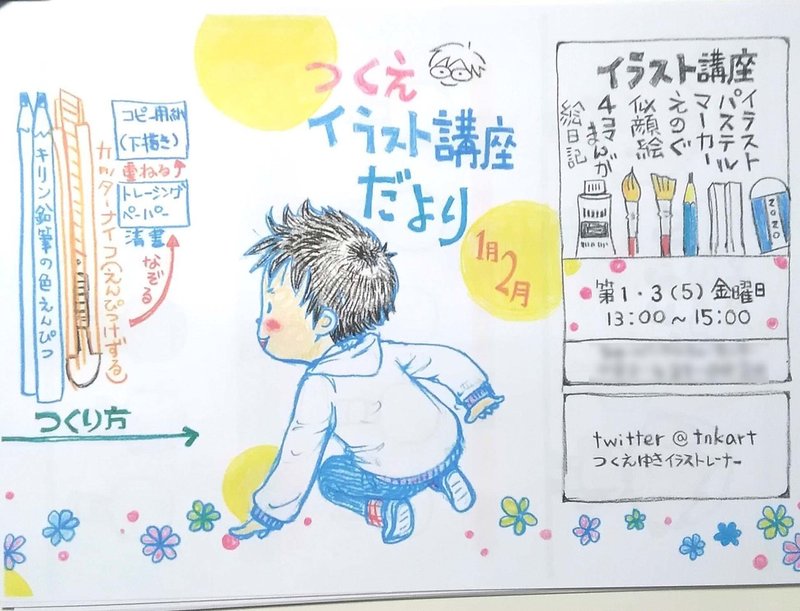 つくえ
イラスト講座
だより
1月
2月
コピー用紙
(下描き)
重ねる
トレーシング
ペーパー
清書
なぞる
キリン鉛筆の色えんぴつ
カッターナイフ(えんぴつけずる)
つくり方
イラスト講座
イラスト
パステル
マーカー
えのぐ
似顔絵
4コマまんが
絵日記
2020
第1・3(5)金曜日
13:00~15:00
twitter @ tnkart
つくえゆきイラストレーナー